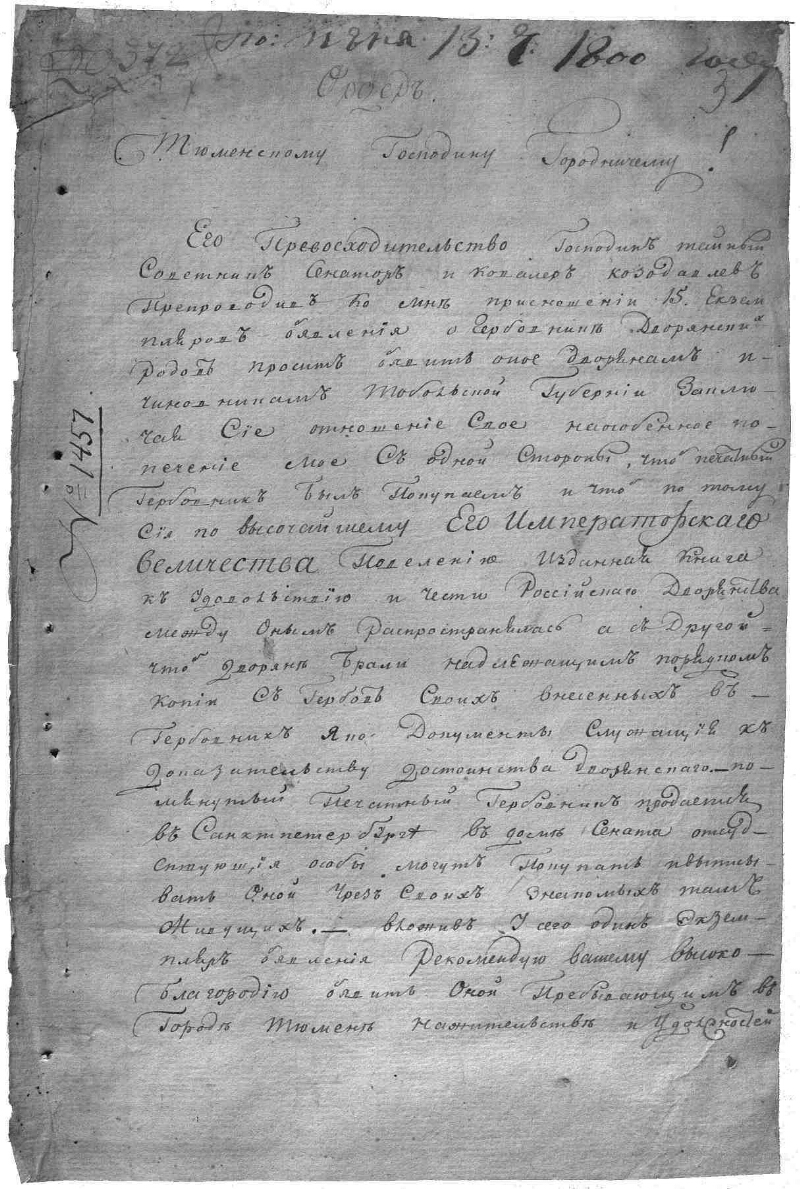 № 572 по: іюня 13: д: 1800 году
3
Ордеръ.
Тюменскому Господину Городничему!
Его Превосходительство Господинъ тайный
Советникъ Сенаторъ и ковалеръ козодавлевъ
Препроводивъ Ко мнѣ присношеніи 15. Екзем
пляровъ обявленія о Гербовникѣ Дворянскихъ
Родовъ проситъ обявить оное дворянамъ и-
чиновникамъ Тобольской Губерніи Заклю-
чая Сіе отношеніе Свое наособенное по-
печеніе мое Съ одной Стороны, чтобъ печатный
Гербовникъ былъ Покупаемъ и чтобъ по тому
Сія по высочайшему Его Императорскаго
величества Повелению Изданная Книга
къ Удовольствію и чести Россійскаго Дворянства
между Онымъ Распространялась а съ Другой-
чтобъ Дворяне Брали надлежащимъ порядкомъ
копіи Съ Гербовъ Своихъ внесенныхъ въ-
Гербовникъ Яко Документы Служащія къ
доказательству достоинства дворянскаго.—по-
мянутый Печатный Гербовникъ продается
въ Санктпетербургѣ въ домѣ Сената отсуд-
ствующія особы могутъ Покупать ивыписы-
вать Оной Чрезъ Своихъ Знакомыхъ тамъ
Живущихъ.— вложивъ У сего одинъ Экзем-
пляръ обявленія Рекомендую вашему высоко-
благородію обявить Оной Пребывающимъ въ
Городѣ Тюмени нажительствѣ и Удолжностей
№ 1457